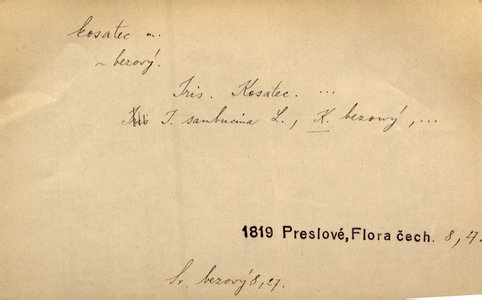 kosatec m.
~ bezový.
Iris. Kosatec. ...
I. sambucina L., K. bezowý, ...
1819 Preslové, Flora čech. 8, 27.
Sr. bezový 8, 27.